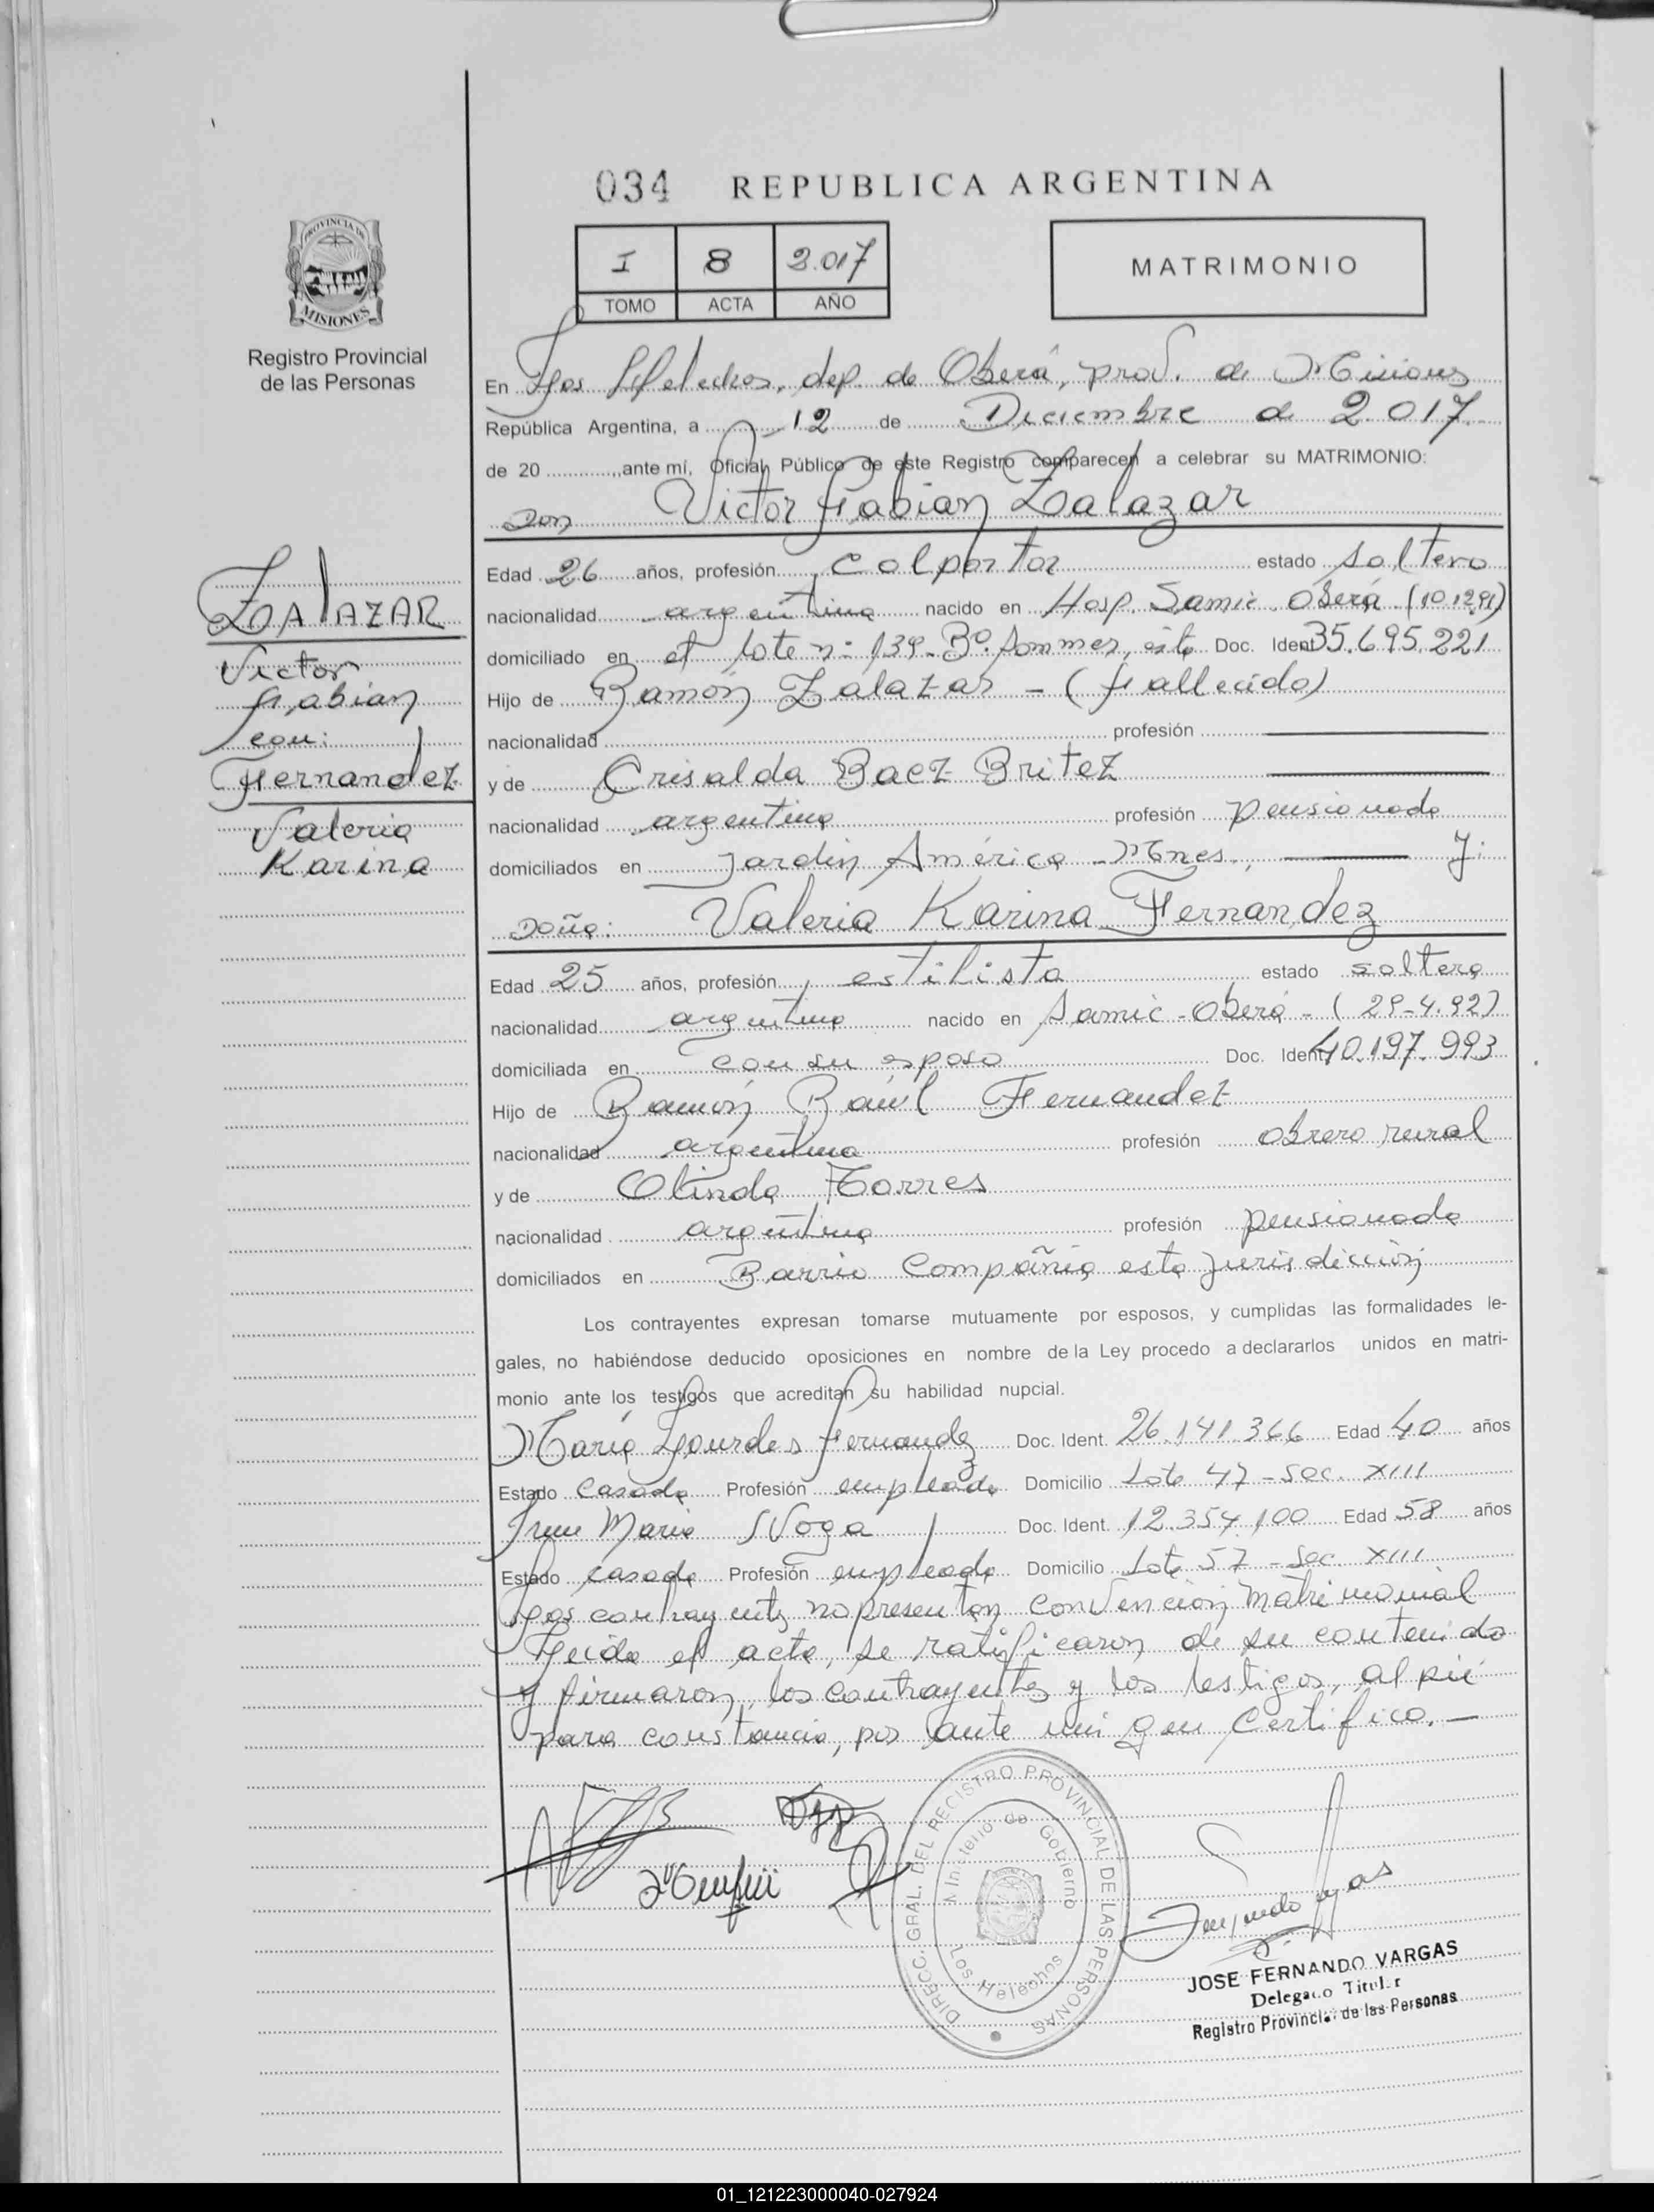 034 REPUBLICA ARGENTINA
I 8 2.017
TOMO ACTA AÑO
MATRIMONIO
PROVINCIA DE
MISIONES
Registro Provincial
de las Personas
En Los Helechos, dep. de Oberá, prov. de Misiones
República Argentina, a 12 de Diciembre de 2.017
de 20 ............, ante mí, Oficial Público de este Registro comparecen a celebrar su MATRIMONIO:
Don Victor Fabian Zalazar
ZALAZAR
Victor
Fabian
con:
Fernandez
Valeria
Karina
Edad 26 años, profesión colportor estado soltero
nacionalidad argentina nacido en Hosp. Samic Oberá (10.12.91)
domiciliado en el lote nº 139 Bº. Sommer, Doc. Ident 35.695.221
Hijo de Ramón Zalazar - (fallecido)
nacionalidad profesión
y de Crisalda Baez Britez
nacionalidad argentina profesión pensionada
domiciliados en Jardín América - Mnes., y:
Doña: Valeria Karina Fernandez
Edad 25 años, profesión estilista estado soltera
nacionalidad argentina nacido en Samic - Oberá - (29-4.92)
domiciliada en con su esposo Doc. Ident 40.197.993
Hijo de Ramón Raúl Fernandez
nacionalidad argentina profesión obrero rural
y de Olinda Torres
nacionalidad argentina profesión pensionada
domiciliados en Barrio Compañia esta jurisdicción
Los contrayentes expresan tomarse mutuamente por esposos, y cumplidas las formalidades le-
gales, no habiéndose deducido oposiciones en nombre de la Ley procedo a declararlos unidos en matri-
monio ante los testigos que acreditan su habilidad nupcial.
María Lourdes Fernandez Doc. Ident. 26.141.366 Edad 40 años
Estado Casada Profesión empleada Domicilio Lote 47 - Sec. XIII
Irene Maria Doc. Ident. 12.354.100 Edad 58 años
Estado casada Profesión empleada Domicilio Lote 57 - Sec XIII
Los contrayentes no presentan convención matrimonial
Leida el acta, se ratificaron de su contenido
y firmaron, los contrayentes y los testigos, al pié
para constancia, por ante mi que certifico. -
DIRECC. GRAL. DEL REGISTRO PROVINCIAL DE LAS PERSONAS
Ministerio de Gobierno
Los Helechos
JOSE FERNANDO VARGAS
Delegado Titular
Registro Provincial de las Personas
01_121223000040-027924